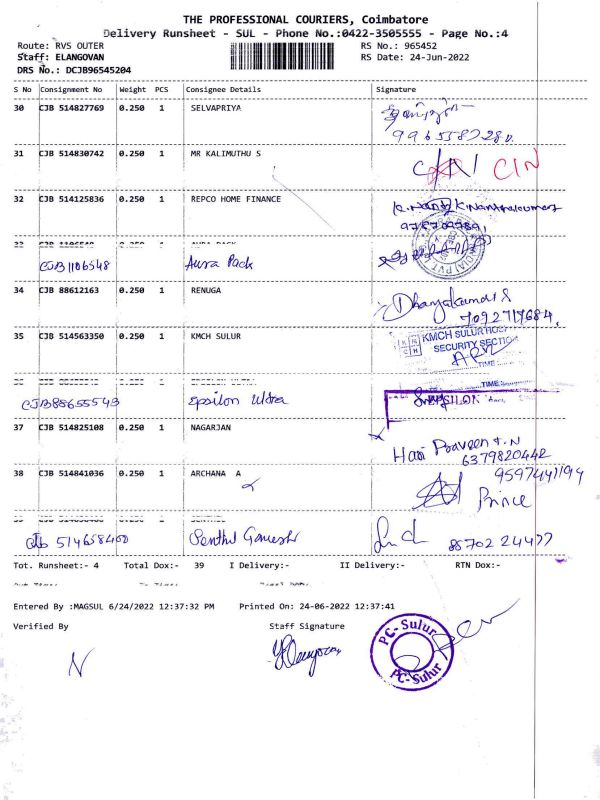 THE PROFESSIONAL COURIERS, Coimbatore
Delivery Runsheet - SUL - Phone No.:0422-3505555 - Page No.:4
Route: RVS OUTER RS No.: 965452
Staff: ELANGOVAN RS Date: 24-Jun-2022
DRS No.: DCJB96545204
S No Consignment No Weight PCS Consignee Details Signature
30 CJB 514827769 0.250 1 SELVAPRIYA
31 CJB 514830742 0.250 1 MR KALIMUTHU S CIN
32 CJB 514125836 0.250 1 REPCO HOME FINANCE
CJB1106548 Aura Pack
34 CJB 88612163 0.250 1 RENUGA
7092717684.
35 CJB 514563350 0.250 1 KMCH SULUR KMCH SULUR
SECURITY SECTION
TIME
TIME
CJB88655543 Epsilon Ultra EPSILON
37 CJB 514825108 0.250 1 NAGARJAN Hari Praveen T.N
6379820442
38 CJB 514841036 0.250 1 ARCHANA A 9597441194
Prince
CJB 514658400 Senthil Ganesh 88702 24477
Tot. Runsheet:- 4 Total Dox:- 39 I Delivery:- II Delivery:- RTN Dox:-
Entered By :MAGSUL 6/24/2022 12:37:32 PM Printed On: 24-06-2022 12:37:41
Verified By Staff Signature
PC- Sulur
PC-Sulur